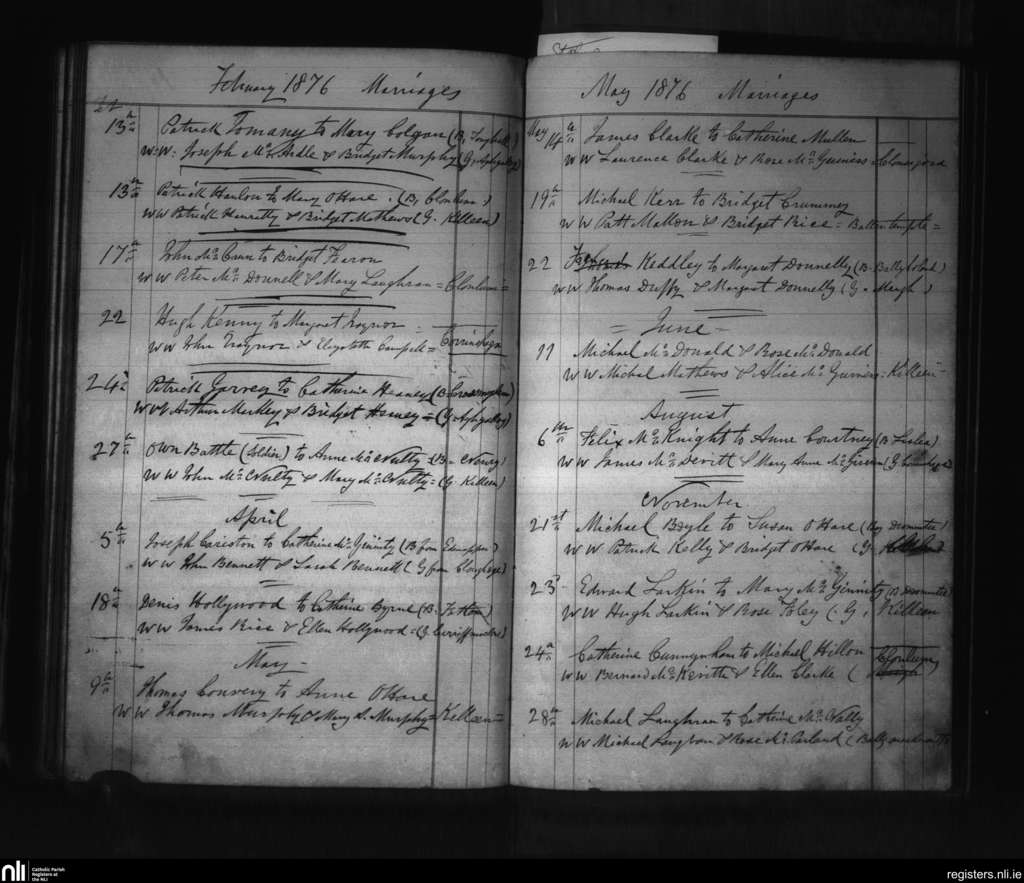 February 1876 Marriages
13th Patrick Tomany to Mary Colgan (B,
W. W. Joseph McArdle & Bridget Murphy (G,
13th Patrick Hanlon to Mary O Hare. (B, Clonlum)
W W Patrick Hanretty & Bridget Mathews (G. Killeen)
17th John McCann to Bridget Fearon
W W Peter McDonnell & Mary Laughran = Clonlum =
22 Hugh Kenny to Margaret Traynor
W W John Traynor & Elizabeth Campell =
24th Patrick to Catherine Heaney (B.
W W Arthur Merkley & Bridget Heaney = (G
27th Own Battle (Soldier) to Anne McNulty = (B = Newry)
W W John McNulty & Mary McNulty = (G. Killeen)
April
5th Joseph to Catherine McGinnity (B from
W W John Bennett & Sarah Bennett (G from
18th Denis Hollywood to Catherine Byrne (B. Fathom)
W W James Rice & Ellen Hollywood = (G.
May
9th Thomas Convery to Anne O Hare
W W Thomas Murphy & Mary A. Murphy = Killeen =
May 1876 Marriages
May 14th James Clarke to Catherine Mullen
W W Laurence Clarke & Rose McGuiness =
19th Michael Kerr to Bridget Crummey
W W Patt Mallon & Bridget Rice =
22 Keddley to Margaret Donnelly (B.
W W Thomas Duffy & Margaret Donnelly (G =
= June =
11 Michael McDonald & Rose McDonald
W W Michael Mathews & Alice McGuiness = Killeen =
August
6th Felix McKnight to Anne Courtney (B
W W James McDevitt & Mary Anne McGivern (G
November
21st Michael Boyle to Susan O Hare (B,
W W Patrick Kelly & Bridget O Hare (G,
23d Edward Larkin to Mary McGinnity (B
W W Hugh Larkin & Rose Foley (. G, Killeen
24th Catherine Cunnynham to Michael Hillon Clonlum
W W Bernard McKevitte & Ellen Clarke (
28th Michael Laughran to Catherine McNally
W W Michael Laughran & Rose McParland (
nli
Catholic Parish
Registers at
the NLI
registers.nli.ie